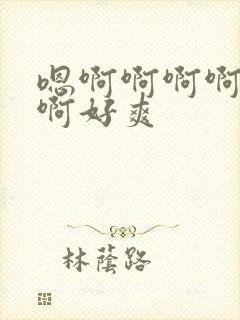 嗯啊啊啊啊
啊好爽
林蔭路